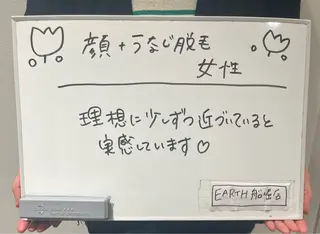 顔+うなじ脱毛
女性
理想に少しずつ近づいていると
実感しています♡
EARTH 船堀店